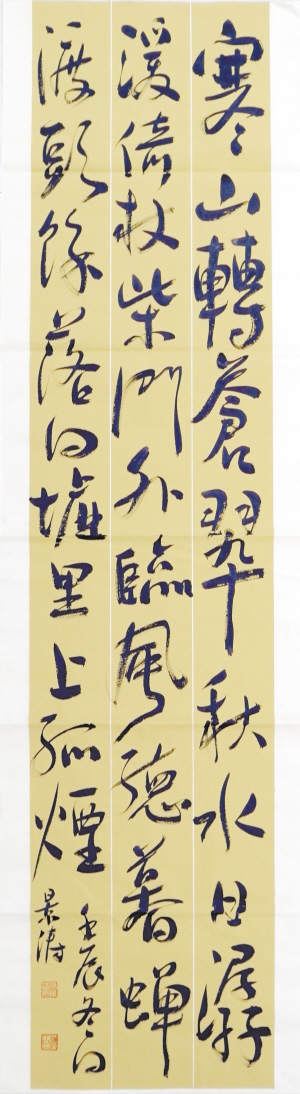 寒山轉蒼翠秋水日潺
湲倚杖柴門外臨風聽暮蟬
渡頭餘落日墟里上孤煙
壬辰冬日
景濤